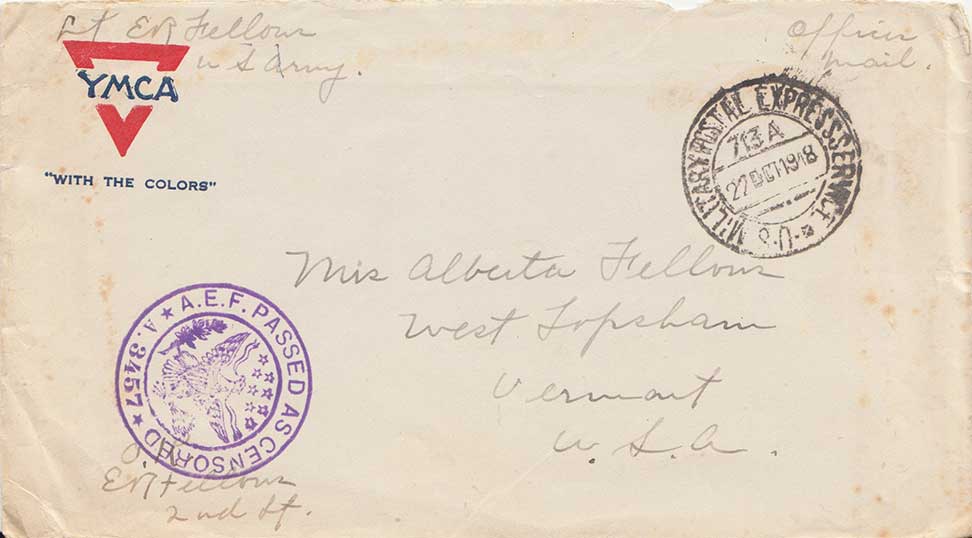 Lt ER Fellows
U S Army.
Officer
mail.
YMCA
"WITH THE COLORS"
U.S. MILITARY POSTAL EXPRESS SERVICE
713A
22 OCT 1918
Mrs Alberta Fellows
West Topsham
Vermont
U.S.A.
A.E.F. PASSED AS CENSORED
A. 3457
O.K.
ER Fellows
2nd Lt.